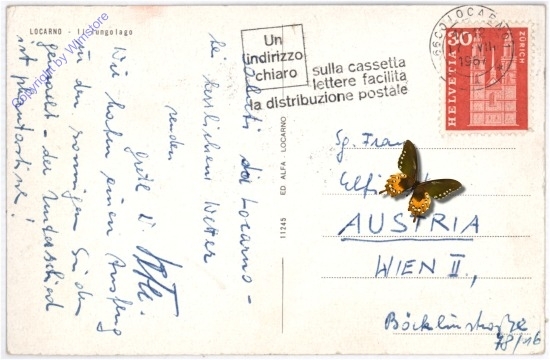 LOCARNO - Il lungolago
Saluti da Locarno -
bei herrlichem Wetter
senden
Wir haben einen Ausflug
in den sonnigen Süden
gemacht - der Unterschied
ist phantastisch!
11245 ED ALFA LOCARNO
Un
indirizzo
chiaro
sulla cassetta
lettere facilita
la distribuzione postale
6600 LOCARNO
HELVETIA 30
ZÜRICH
Sg. Frau
Elfi
AUSTRIA
WIEN II.,
Böcklinstraße
78/16
Copyright by W.mstore